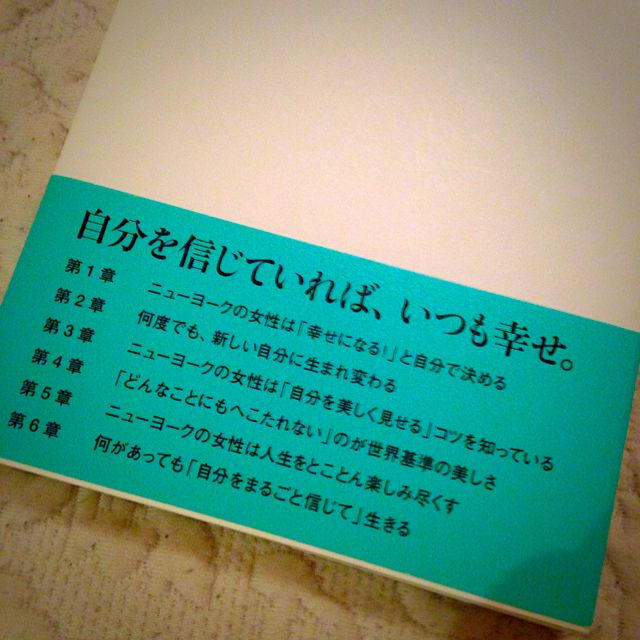 自分を信じていれば、いつも幸せ。
第1章 ニューヨークの女性は「幸せになる!」と自分で決める
第2章 何度でも、新しい自分に生まれ変わる
第3章 ニューヨークの女性は「自分を美しく見せる」コツを知っている
第4章 「どんなことにもへこたれない」のが世界基準の美しさ
第5章 ニューヨークの女性は人生をとことん楽しみ尽くす
第6章 何があっても「自分をまるごと信じて」生きる